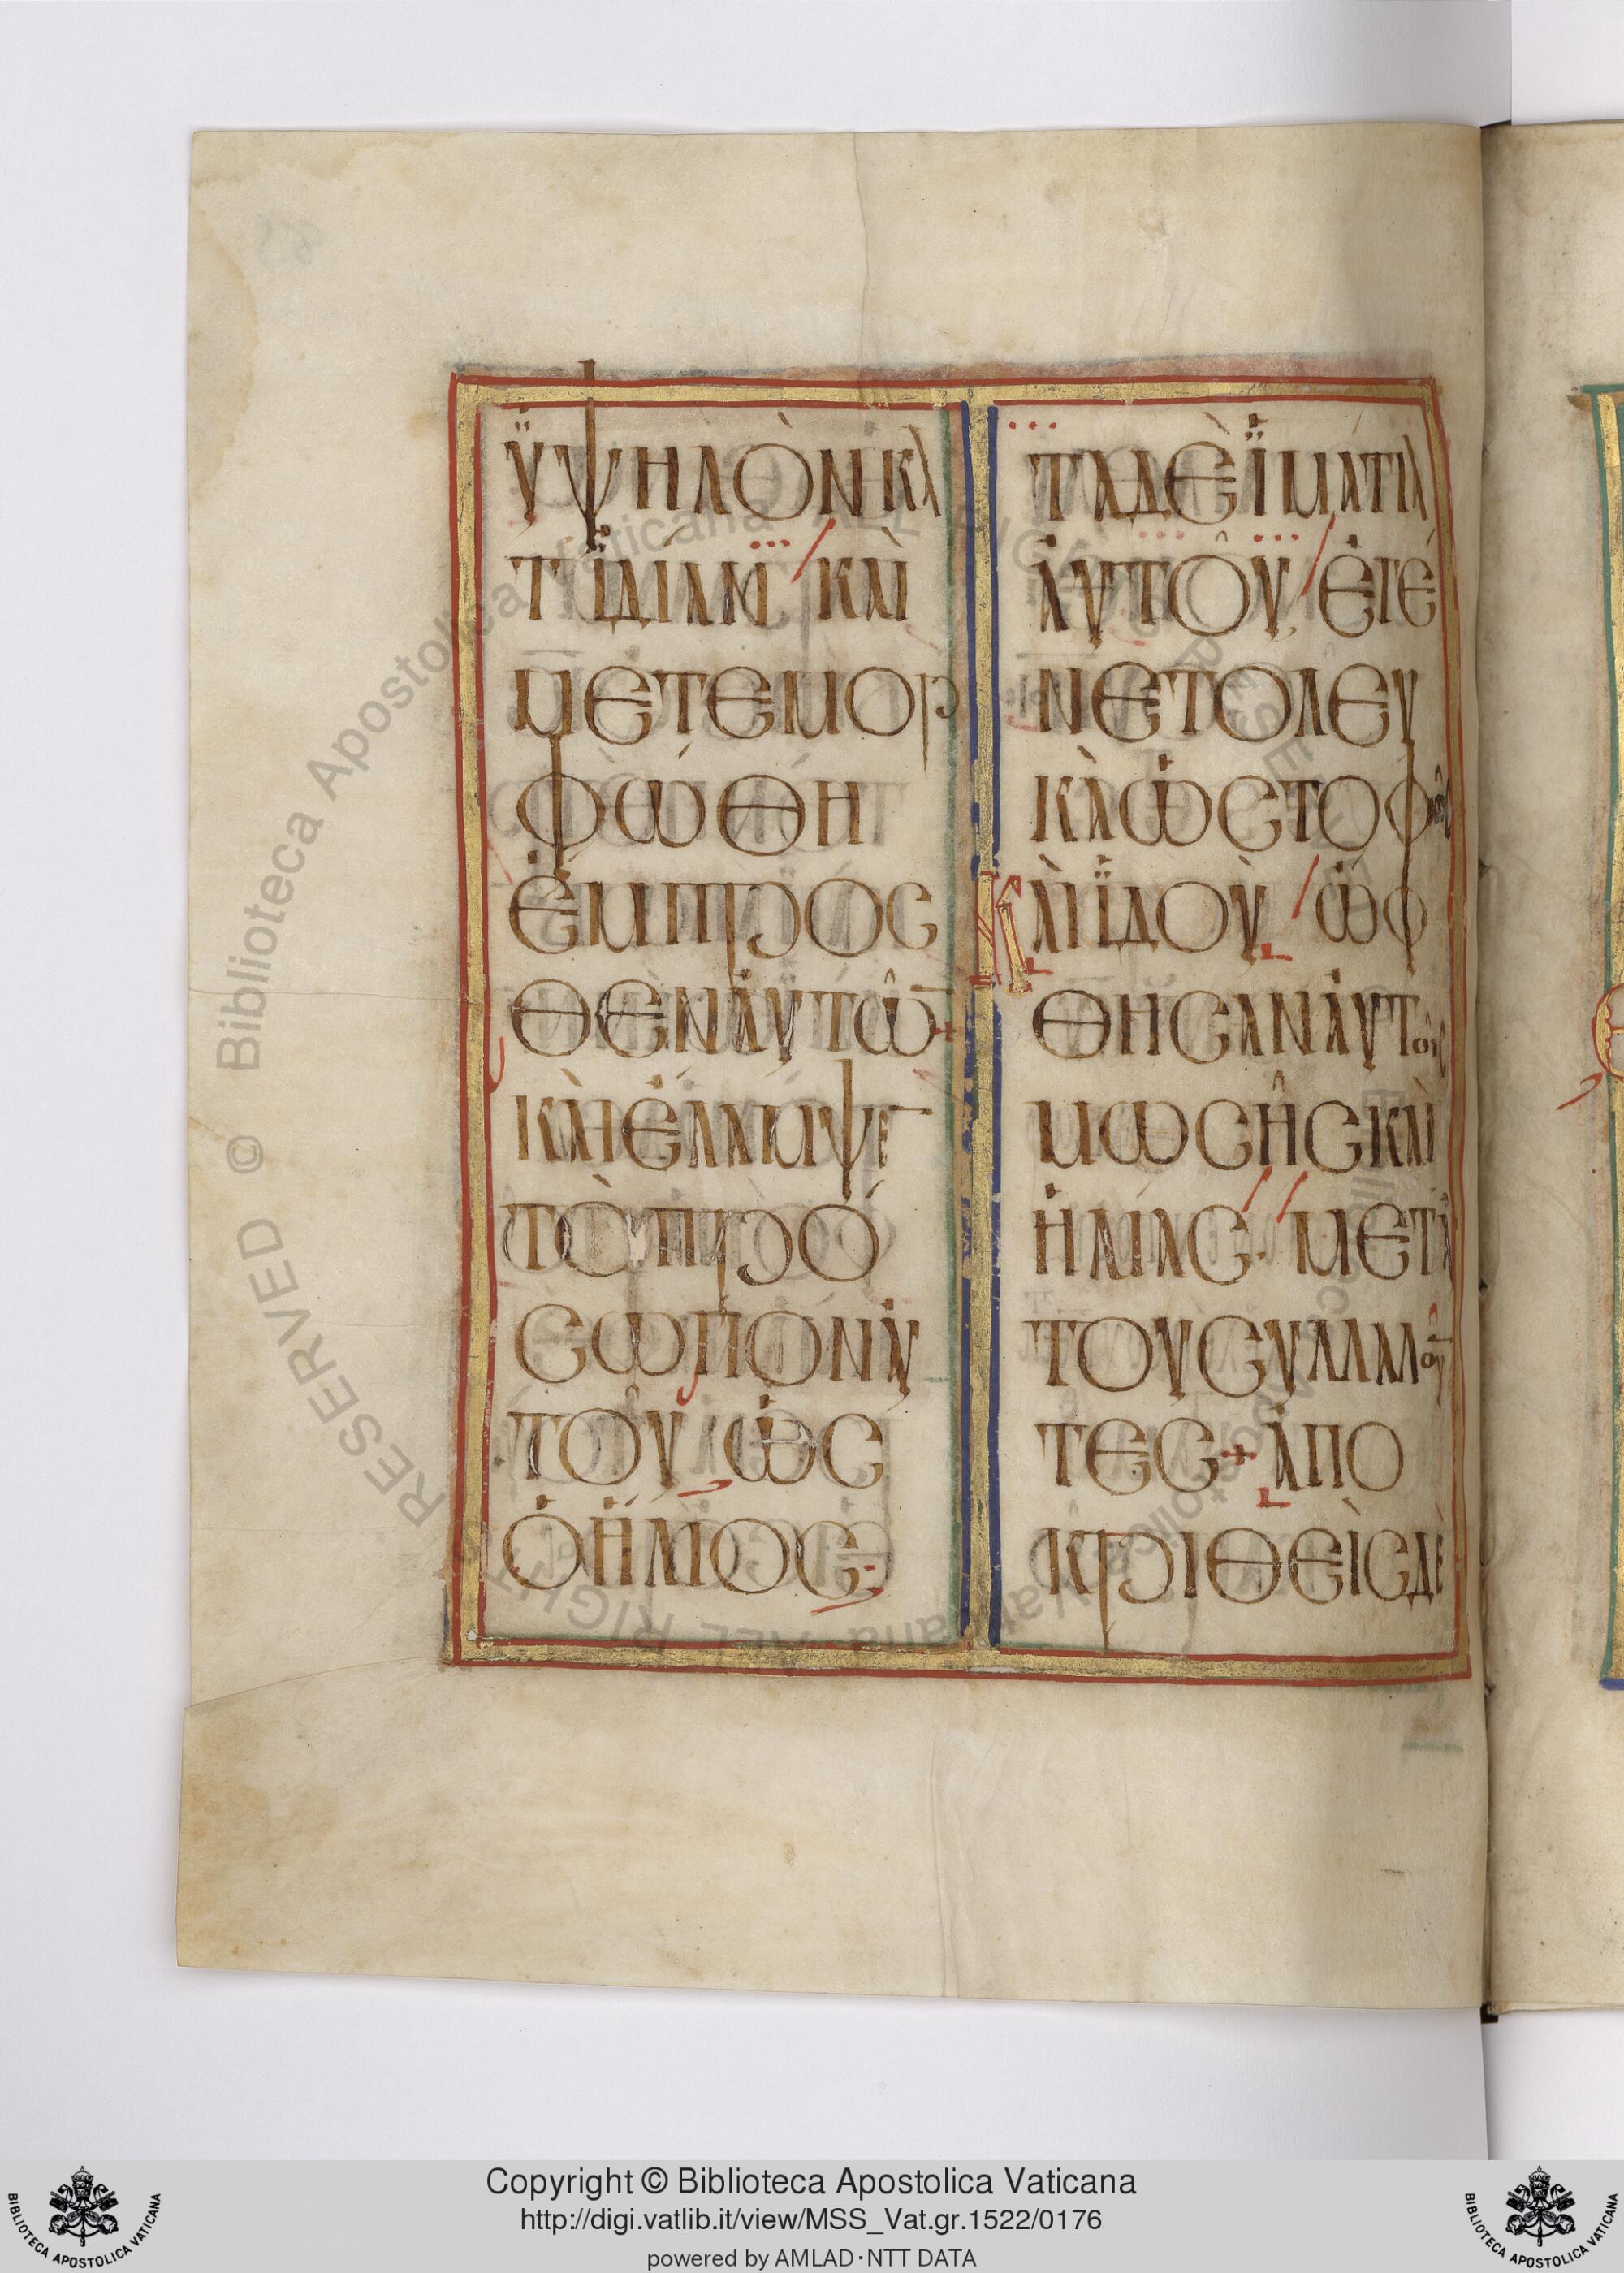 ὙΨΗΛῸΝ ΚΑ
Τ ἸΔΊΑΝ ΚΑῚ
ΜΕΤΕΜΟΡ
ΦΏΘΗ
ἘΜΠΡΟΣ
ΘΕΝ ἈΥΤΩ̂
ΚᾺΙ ἜΛΑΜΨΕ
ΤῸ ΠΡΌ
ΣΩΠΟΝ ἈΥ
ΤΟΥ͂ ὩΣ
Ὁ ἭΛΙΟΣ·
ΤΑ ΔῈ ἹΜΆΤΙΑ
ἈΥΤΟΥ͂ ἘΓΈ
ΝΕΤΟ ΛΕΥ
ΚᾺ ὩΣ ΤΟ ΦΩ͂Σ
ΚΑῚ ἸΔΟῪ ὨΦ
ΘΗΣΑΝ ἈΥΤΟΙΣ
ΜΩΣΗ͂Σ ΚΑῚ
ἨΛΊΑΣ· ΜΕΤ Ἀ
ΤΟΥ ΣΥΛΛΑΛΟΥ͂
ΤΕΣ + ἈΠΟ
ΚΡΙΘΕῚΣ ΔΕ
BIBLIOTECA APOSTOLICA VATICANA
Copyright © Biblioteca Apostolica Vaticana
http://digi.vatlib.it/view/MSS_Vat.gr.1522/0176
powered by AMLAD·NTT DATA
BIBLIOTECA APOSTOLICA VATICANA